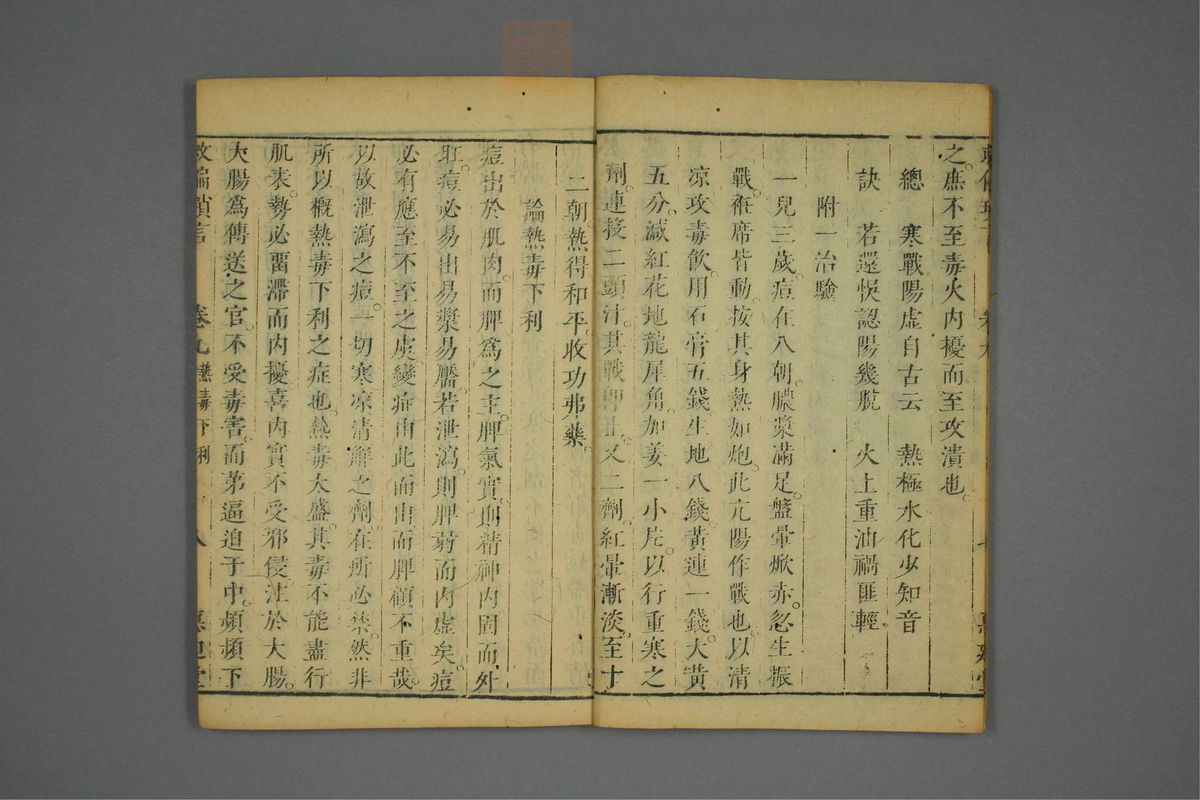 之庶不至毒火内擾而至攻潰也
總　寒戰陽虛自古云　熱極水化少知音
訣　若還悞認陽幾脫　火上重油禍匪輕
附一治驗
一兒三歲痘在八朝膿漿滿足盤暈焮赤忽生振
戰袵席皆動按其身熱如炮此亢陽作戰也以清
凉攻毒飲用石膏五錢生地八錢黃連一錢大黃
五分減紅花地龍犀角加姜一小片以行重寒之
劑連接二頭汁其戰即止又二劑紅暈漸淡至十
二朝熱得和平收功弗藥
論熱毒下利
痘出於肌肉而脾爲之主脾氣實則精神内固而外
旺痘必易出易漿易靨若泄瀉則脾弱而内虛矣痘
必有應至不至之虞變症由此而出而脾顧不重哉
以故泄瀉之痘一切寒凉清解之劑在所必禁然非
所以概熱毒下利之症也熱毒太盛其毒不能盡行
肌表勢必畱滯而内擾喜内實不受邪侵注於大腸
大腸爲傳送之官不受毒害而第逼迫于中頻頻下
救偏瑣言　卷九　熱毒下利　八　惠迪堂